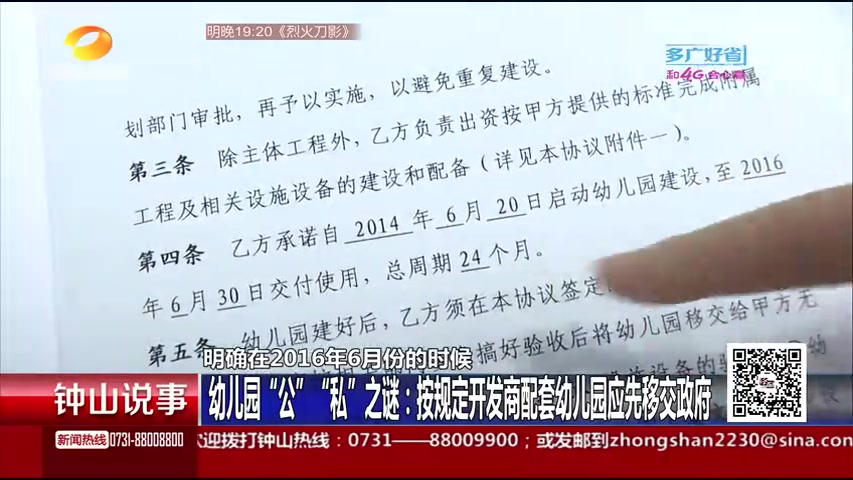 明晚19:20《烈火刀影》
多广好省
和4G 合心意
划部门审批，再予以实施，以避免重复建设。
第三条 除主体工程外，乙方负责出资按甲方提供的标准完成附属
工程及相关设施设备的建设和配备（详见本协议附件一）。
第四条 乙方承诺自 2014 年 6 月 20 日启动幼儿园建设，至 2016
年 6 月 30 日交付使用，总周期 24 个月。
第五条 幼儿园建好后，乙方须在本协议签定
搞好验收后将幼儿园移交给甲方无
明确在2016年6月份的时候
钟山说事
幼儿园“公”“私”之谜：按规定开发商配套幼儿园应先移交政府
新闻热线 0731-88008800
欢迎拨打钟山热线：0731——88009900；或发短信至邮箱：zhongshan2230@sina.com